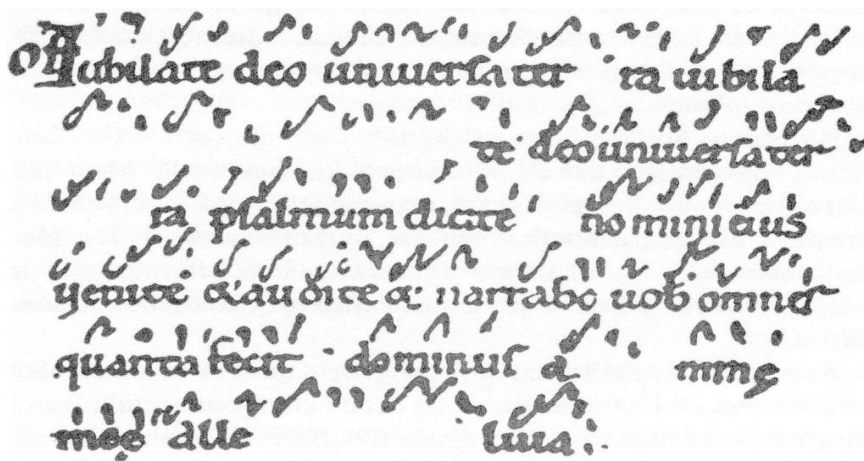 Of Iubilate deo uniuerſa ter ra iubila
te deo uniuerſa ter
ra pſalmum dicite nomini eius
uenite & audite & narrabo uob omneſ
quanta fecit dominuſ a nimę
meę alle luia.